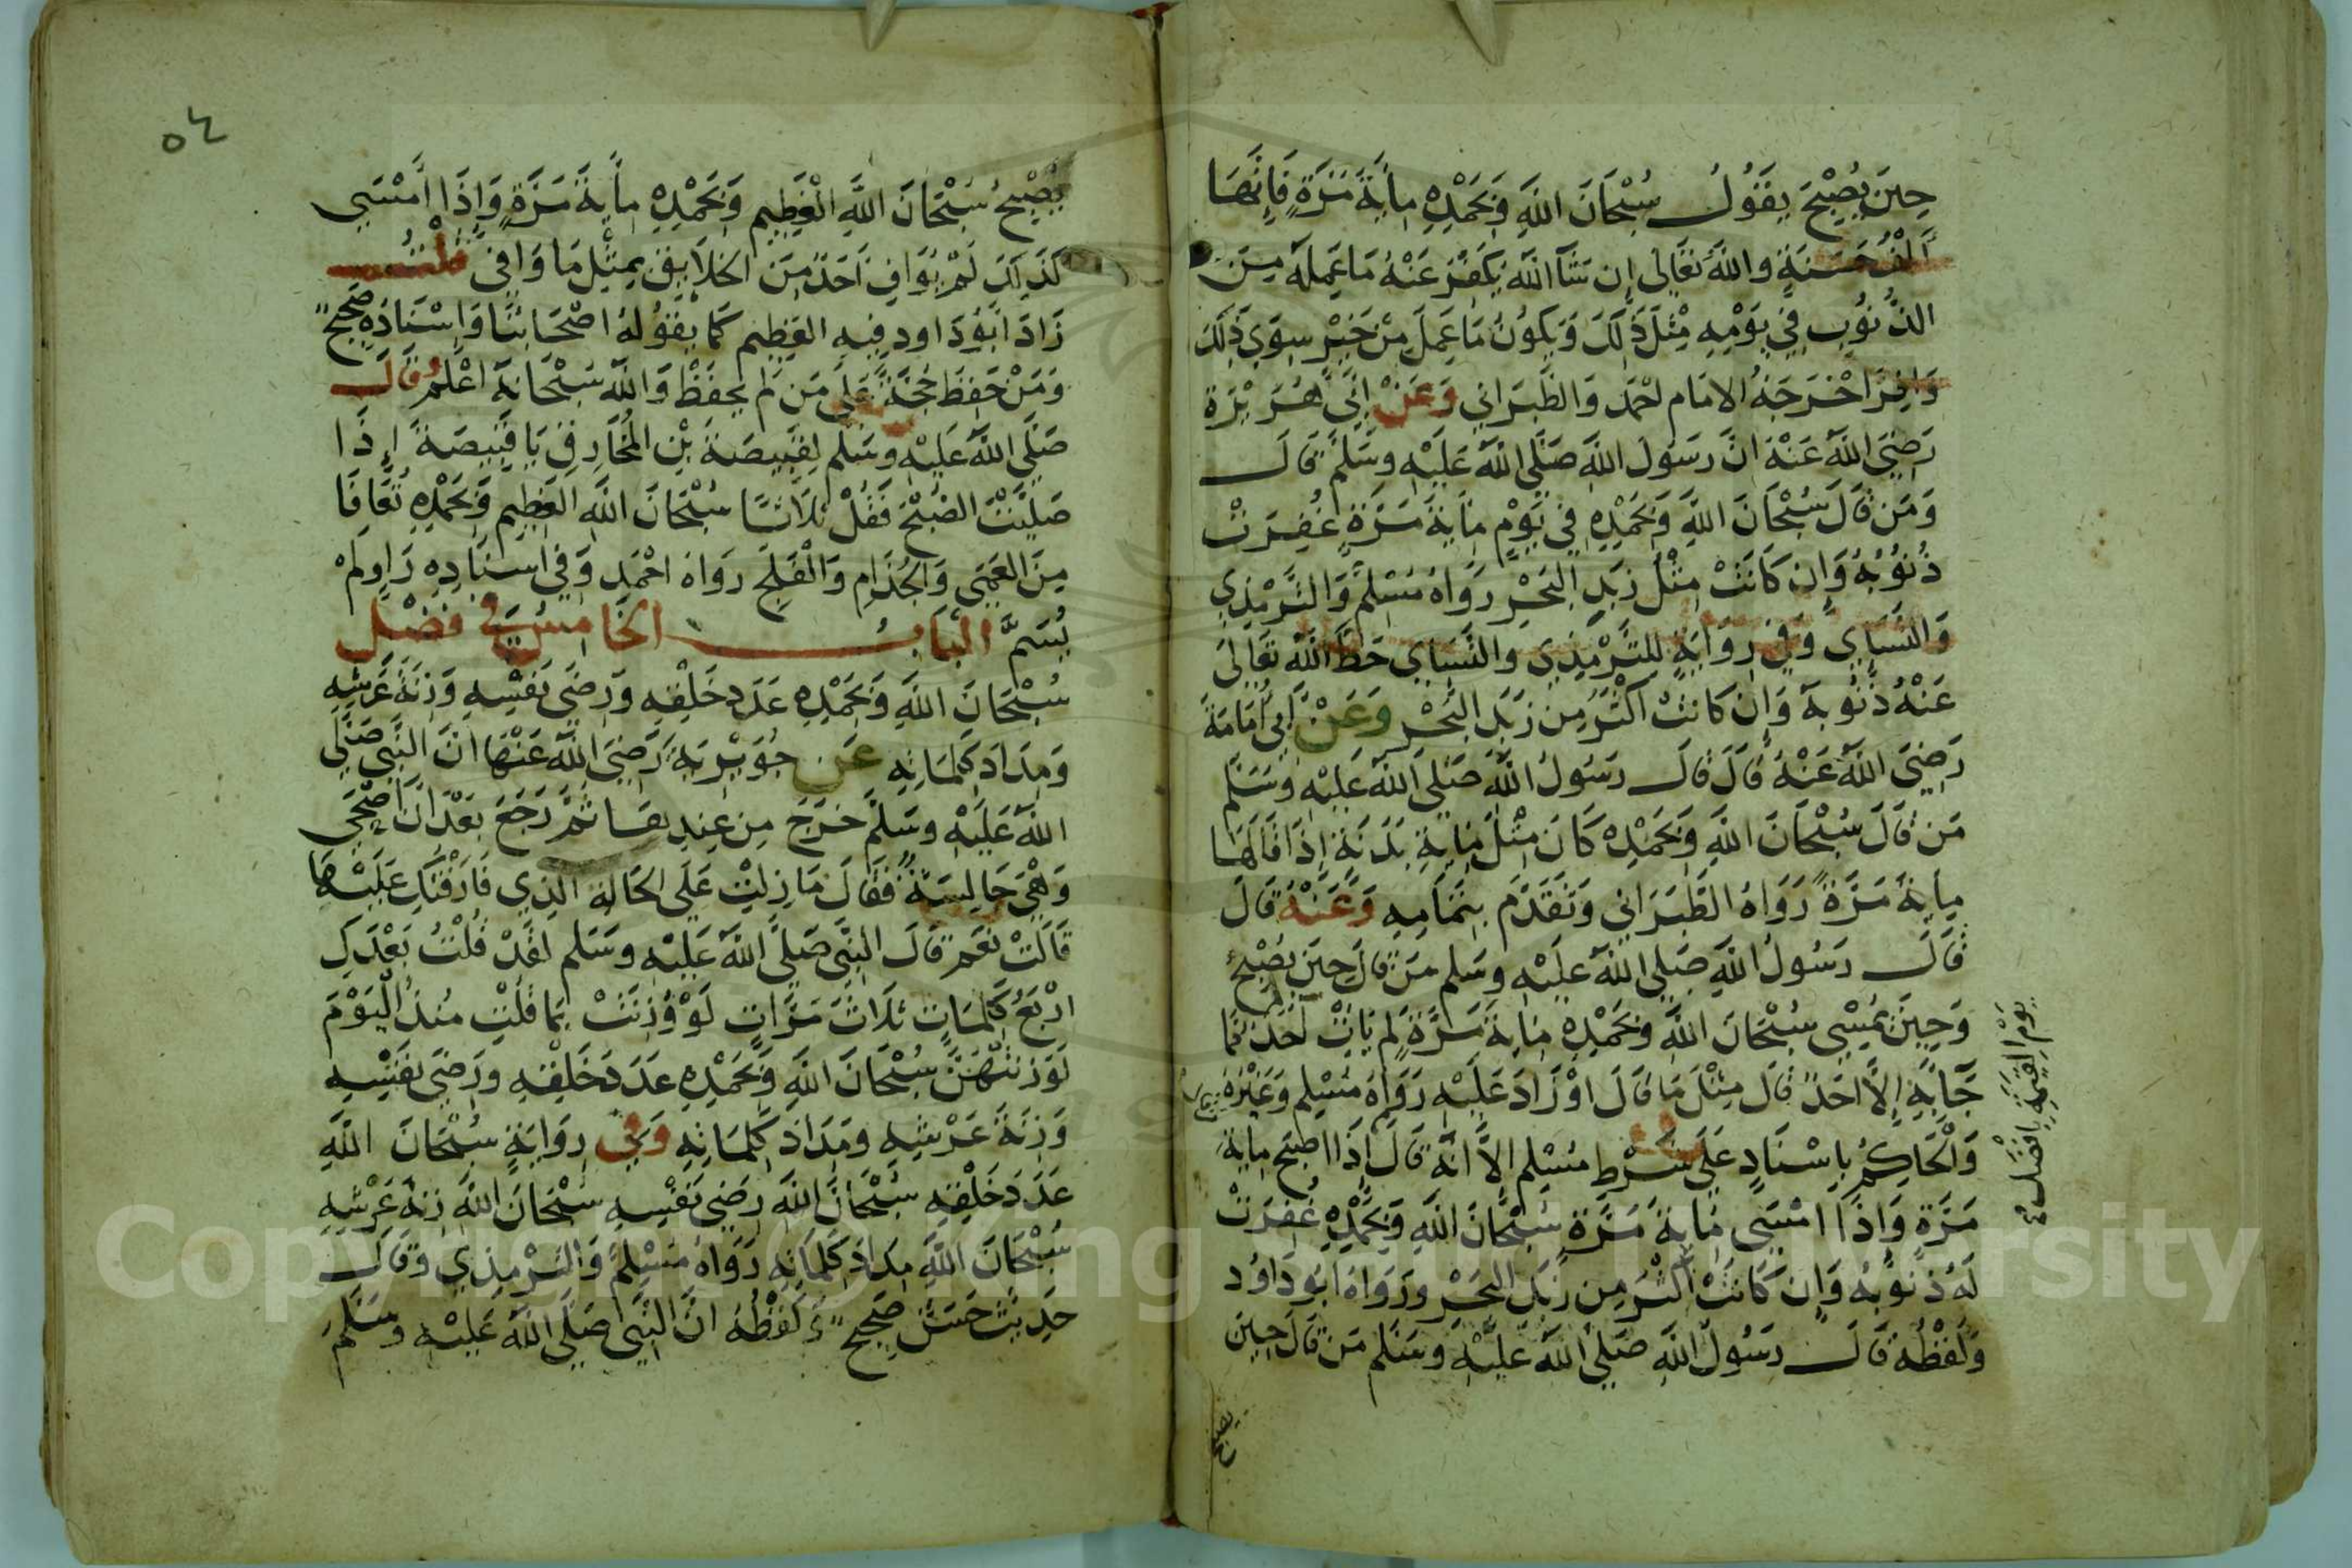 حِينَ يُصْبِحَ يَقُولُ سُبْحَانَ اللهِ وَبَحَمْدِهِ مِأيَةَ مَرَّةٍ فَاِنَّهَا
اَلْفُ حَسَنَةٍ واللهُ تعَالى إن شَآ اللهَ يَكفِرْ عَنْهُ مَا عَمِلَه مِنَ
الذُّنُوبِ فِي يَوْمِهِ مِثْلَ ذَلِكَ وَيَكُونُ مَا عَمِلَ مِنْ خَيْرٍ سِوَي ذَلِكَ
وَافِرَا اخْرَجَهُ الامَام احْمَد وَالطَّبَرَاني وَعَنْ اَبِي هُرَيْرَة
رَضِيَ اللهُ عَنْهُ انَّ رَسُولَ اللهِ صَلَّي اللهُ عَلَيْهِ وسَلَّمَ قَالَ
وَمَن قَالَ سُبْحَانَ اللهِ وَبَحَمْدِهِ فِي يَوْمٍ مِأيَةَ مَرَّةٍ غُفِرَتْ
ذُنُوُبُهُ وَإِن كَانَتْ مِثْلُ زَبَدِ البَحْرِ رَوَاهُ مُسْلِم وَالتَّرْمِذِي
وَالنَّسَاي وَفِي رِوَايَةٍ للتَّرْمِذِي وَالنَّسَاي حَطَّ اللهُ تَعَالَي
عَنْهُ ذُنُوبهُ وَإِن كَانَتْ اَكْثَرُ مِن زَبَدِ البَحْرِ وَعَنْ أَبي أُمَامَةَ
رَضِيَ اللهُ عَنْهُ قَالَ قَالَ رَسُولُ اللهِ صَلي اللهُ عَلَيْهِ وَسَلَّم
مَن قَالَ سُبْحَانَ اللهِ وَبَحَمْدِه كَانَ مِثْلَ مِأيَةِ بَدَنَةَ إِذَا قَالَهَا
مِايَةَ مَرَّةً رَوَاهُ الطَّبَرَاني وَتَقَدَّمَ بِتَمَامِهِ وَعَنْهُ قَالَ
قَالَ رَسُولُ اللهِ صَلي اللهُ عَلَيْهِ وسَلم مَن قَالَ حِينَ يُصْبِحُ
وَحِينَ يُمْسِي سُبْحَانَ اللهِ وَبحَمْدِهِ مِايَةَ مَرَّةٍ لَم يَاتِ احَدٌ
جَآ بَهِ إِلاَّ احَدٌ قَال مِثْلَ مَا قَالَ اوْ زَادَ عَلَيْهِ رَوَاهُ مُسْلِم وَغَيْرُهُ
يَوْمَ القِيمَةِ بِافْضَل
وَالحَاكِمُ بِاسْنَادٍ عَلَي شَرْطِ مُسْلِم الاَّ انَّهُ قَالَ اِذَا اصْبَحَ مِايَةَ
مَرَّةٍ وَاِذَا امْسَي مِايَةَ مَرَّةٍ سُبْحَانَ اللهِ وَبَحَمْدِهِ غُفِرَتْ
لَهُ ذنُوبُه وَإن كَانَتْ اكْثَرَ مِن زَبَد البَحْر وَرَوَاهُ ابُو دَاوُد
وَلَفْظُه قَالَ رَسُولُ اللهِ صَلي اللهُ عَليْهِ وسَلم مَن قَالَ حِينَ
يصبح
٥٤
يُصْبِحُ سُبْحَانَ اللهِ العَظِيمِ وَبَحَمْدِهِ مِأيَةَ مَرَّةٍ وَإِذَا أَمْسَي
كَذلِكَ لَمْ يُوَافِ اَحَدٌ مِنَ الخلاَيِقِ بِمِثْلِ مَا وَافَي قُلْتُ
زَادَ ابُو دَاود فِيهِ العَظِيم كَمَا يَقُولُهُ اصْحَابُنَا وَاِسْنَادُه صَحِيح
وَمَنْ حَفِظَ حُجَّةً عَلي مَن لَم يَحفَظْ وَاللهُ سُبْحَانَهُ اعْلَمُ وقَالَ
صَلَّي اللهُ عَلَيْهِ وسَلم لِقَبِيصَةَ بْنِ المُخَارِقِ يَا قَبِيصَةَ إِذَا
صَلَّيْتَ الصُّبْحَ فَقُلْ ثَلاَثًا سُبْحَانَ اللهِ العَظِيمِ وَبحَمْدِهِ تُعَافَا
مِنَ العَمَي وَالجُذَامِ وَالْفَلَجِ رَوَاهُ احْمَد وَفِي اسْنَادِهِ رَاوٍ لَمْ
يُسَمَّ البَابُ الخَامِسُ في فَضْل
سُبْحَانَ اللهِ وَبَحَمْدِهِ عَدَدِ خَلْقِهِ وَرِضَي نَفْسِهِ وَزِنَةَ عَرْشِهِ
وَمِدَادَ كَلِمَاتِهِ عَن جُوَيْرِيَةَ رَضِيَ اللهُ عَنْهَا انَّ النَّبِي صَلَّي
اللهُ عَلَيْهِ وسَلَّمَ خَرَجَ مِن عِنْدِهَا ثُمَّ رَجَعَ بَعْدَ انْ اضْحَي
وَهْيَ جَالِسَةٌ فَقَالَ مَا زِلْتِ عَلَي الحَالَةِ الَّذِي فَارَقْتُكِ عَلَيْهَا
قَالَتْ نَعَم قَالَ النَّبِي صَلَّى اللهُ عَلَيْهِ وسَلم لَقَدْ قُلْتُ بَعْدَكِ
ارْبَعُ كَلِمَاتٍ ثَلاَثَ مَرَّاتٍ لَوْ وُزِنَتْ بِمَا قُلْتِ مُنْذُ الْيَوْمَ
لَوَزَنَتْهُنَّ سُبْحَانَ اللهِ وَبَحَمْدِهِ عَدَدَ خَلْقِهِ وَرِضَي نَفْسِهِ
وَزِنَةَ عَرْشِهِ ومِدَادَ كَلِمَاتِهِ وَفِي رِوَايَةٍ سُبْحَانَ اللهِ
عَدَدَ خَلْقِهِ سُبْحَانَ اللهِ رِضَي نَفْسِهِ سُبْحَانَ اللهِ زِنَةَ عَرْشِهِ
سُبْحَانَ اللهِ مِدَادَ كَلِمَاتِهِ رَوَاهُ مُسْلِمٌ وَالتَّرْمِذِي وَقَالَ
حَدِيثٌ حَسَنٌ صَحِيحٌ وَلَفْظُهُ انَّ النَّبِي صَلَّى اللهُ عَلَيْهِ وسَلَّمَ
Copyright © King Saud University